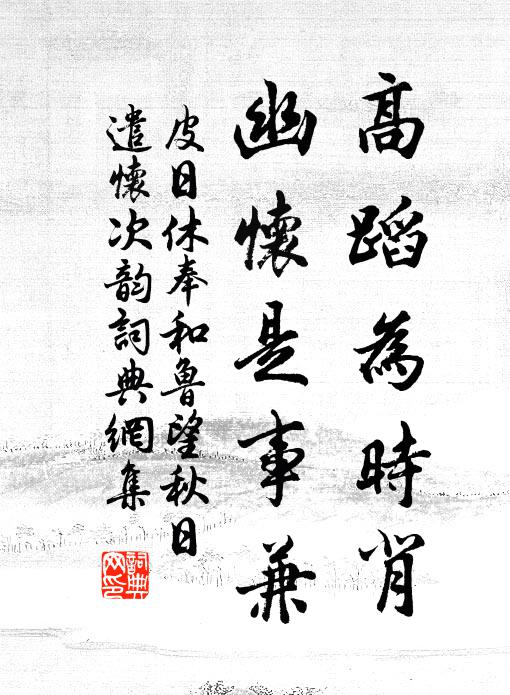 高蹈為時背
幽懷是事兼
皮日休奉和魯望秋日
遣懷次韵詞典網集
詞典
网印